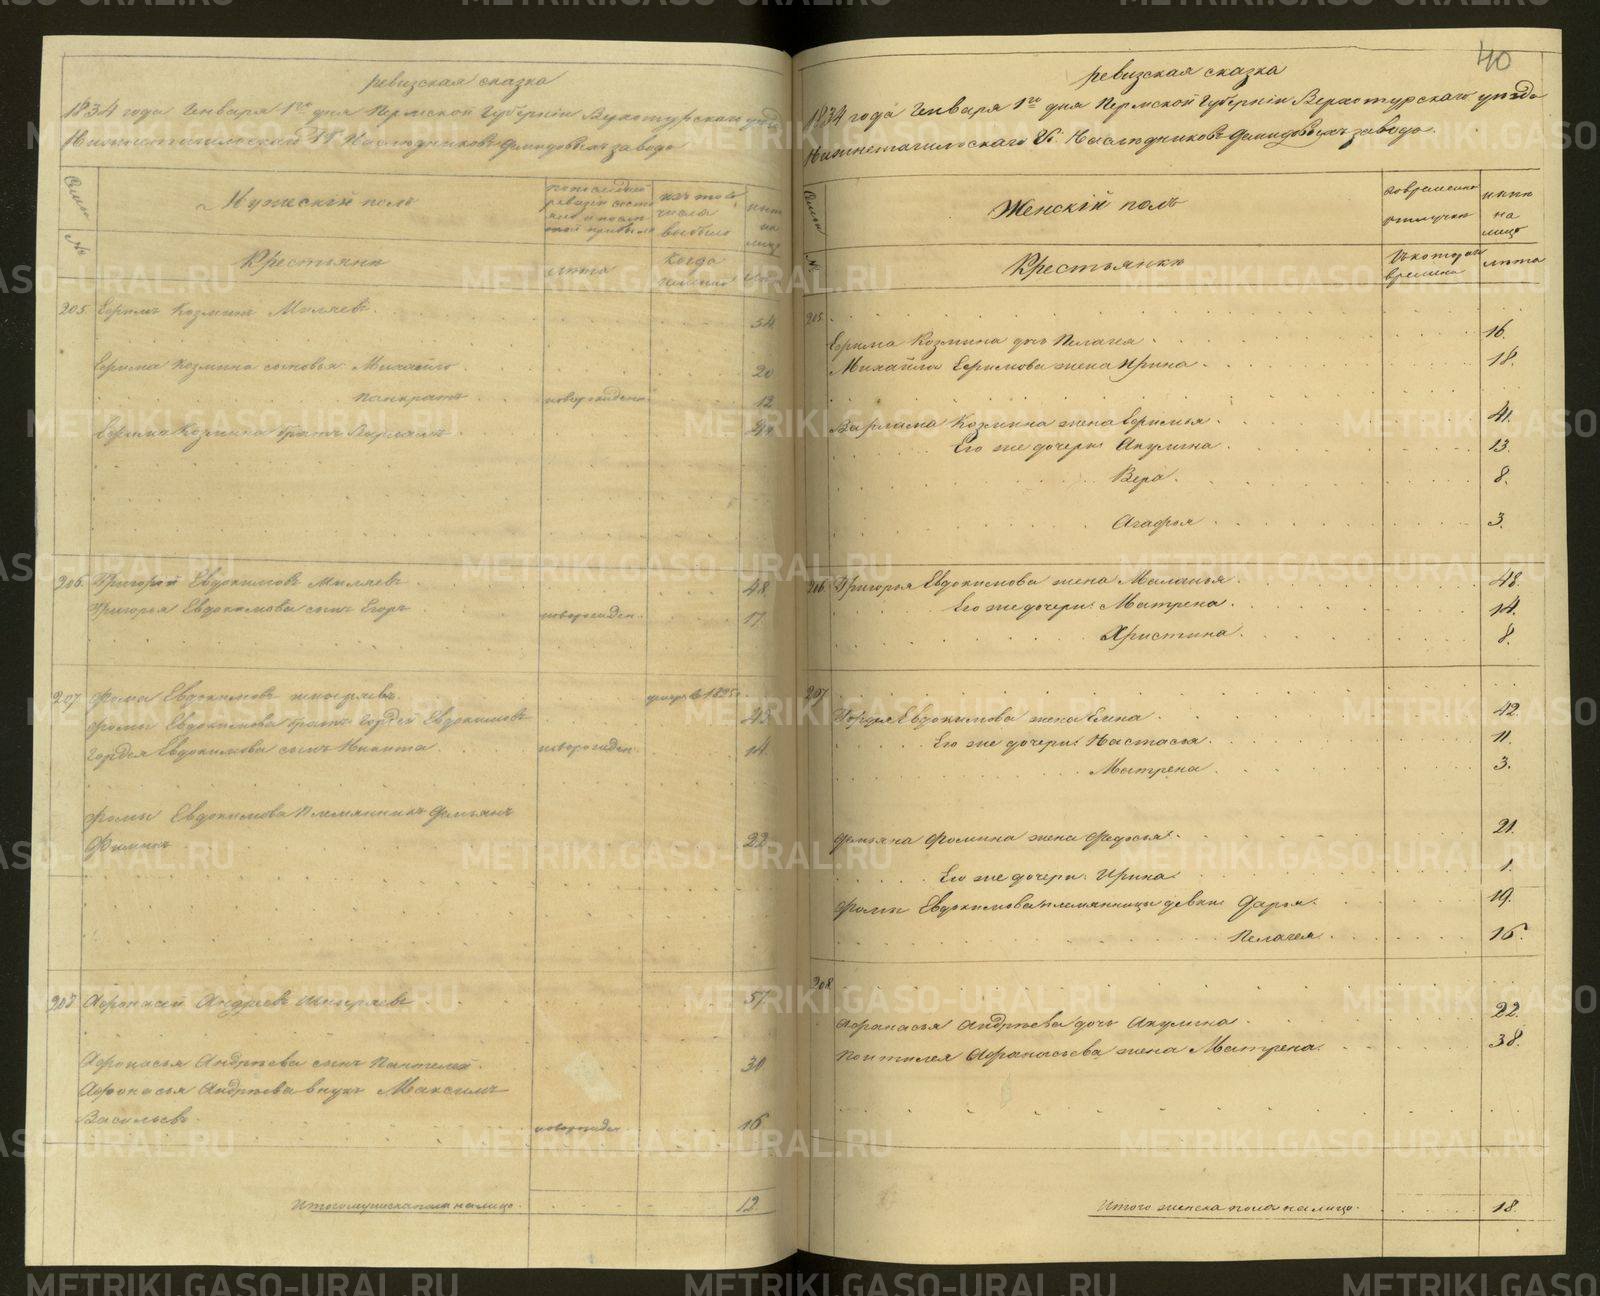 40
ревизская сказка
1834 года Генваря 1го дня Пермской Губернiи Верхотурскаго уезда
Нижнетагильскаго Гг. Наследниковъ Демидовыхъ завода
Семьи №
Мужескiй полъ
по последней ревизiи состояло и после той прибыло
изъ того числа выбыло
ныне на лицо
Крестьяне
лета
когда именно
лета
205 Ефимъ Козминъ Миляевъ. 54
Ефима Козмина сыновья Михайло. 20
Панкратъ новорожден. 12
Ефима Козмина братъ Варламъ. 44
206 Григорей Евдокимовъ Миляевъ 48
Григорья Евдокимова сынъ Егоръ новорожден. 17
207 Фома Евдокимовъ 1825
Фомы Евдокимова братъ Гордей Евдокимовъ 45
Гордея Евдокимова сынъ Никита. новорожден. 14
Фомы Евдокимова Племянникъ Демьянъ
Фоминъ 22
208 Афонасей Андреевъ Шмыряевъ 57
Афонасья Андреева сынъ Пантелей. 30
Афонасья Андреева внукъ Максимъ
Васильевъ. новорожден 16
Итого мужеска пола на лицо. 12
ревизская сказка
1834 года Генваря 1го дня Пермской Губернiи Верхотурскаго уезда
Нижнетагильскаго Гг. Наследниковъ Демидовыхъ завода.
Семьи №
Женскiй полъ
во временной отлучке
ныне на лицо
Крестьянки
съ котораго времени
лета
205
Ефима Козмина дочь Пелагея. 16.
Михайла Ефимова жена Ирина. 18.
Варлама Козмина жена Ефимья. 41.
Его же дочери: Акулина. 13.
Вера. 8.
Агафья 3.
206 Григорья Евдокимова жена Маланья. 48.
Его же дочери: Матрена. 14.
Христина. 8.
207
Гордея Евдокимова жена Елена. 42.
Его же дочери: Настасья. 11.
Матрена. 3.
Демьяна Фомина жена Федосья. 21.
Его же дочери: Ирина. 1.
Фомы Евдокимова племянницы девки: Дарья. 19.
Пелагея. 16.
208
Афанасья Андреева дочь Акулина. 22.
Понтилея Афанасьева жена Матрена. 38.
Итого женска пола на лицо. 18.
METRIKI.GASO-URAL.RU